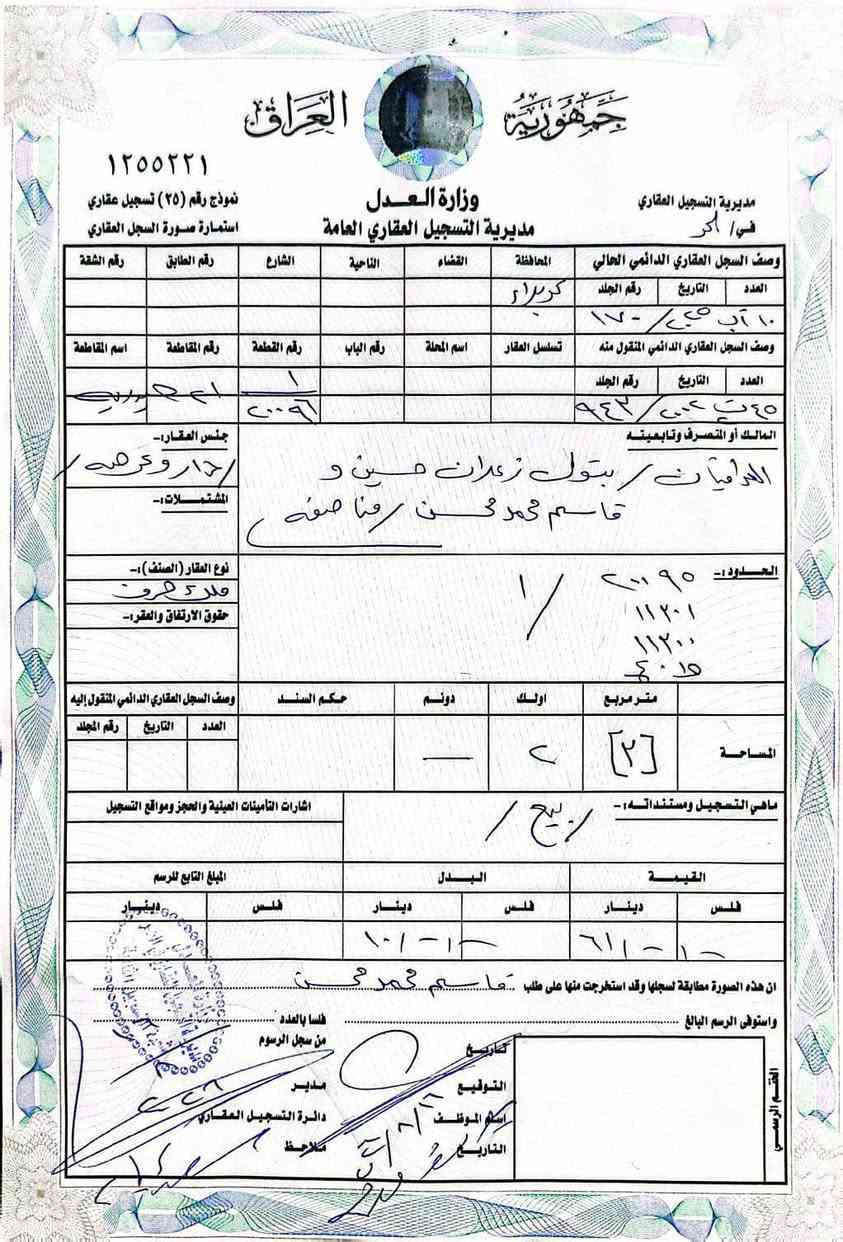 جمهورية العراق
١٢٥٥٢٢١
وزارة العدل
مديرية التسجيل العقاري
نموذج رقم (٢٥) تسجيل عقاري
في/ الحر
مديرية التسجيل العقاري العامة
استمارة صورة السجل العقاري
وصف السجل العقاري الدائمي الحالي المحافظة القضاء الناحية الشارع رقم الطابق رقم الشقة
العدد التاريخ رقم الجلد كربلاء
١٠ آب ١٧٠
وصف السجل العقاري الدائمي المنقول منه تسلسل العقار اسم المحلة رقم الباب رقم القطعة رقم المقاطعة اسم المقاطعة
العدد التاريخ رقم الجلد
١
٢٠٠٩٦
٤٥ ت ٢٠٠٢/ ٩٤٣
المالك أو المتصرف وتابعيته
جنس العقار:-
العراقيان/ بتول زعلان حسين و
قاسم محمد محسن / مناصفة
المشتملات:-
الحدود:-
٢٠٠٩٥ ١
١١٣٠١
١١٣٠٠
نوع العقار (الصنف):-
ملك صرف
حقوق الارتفاق والعقر:-
متر مربع اولك دونم حكم السند وصف السجل العقاري الدائمي المنقول إليه
العدد التاريخ رقم المجلد
المساحة [٣] ٢ —
ماهي التسجيل ومستنداته:- / بيع /
اشارات التأمينات العينية والحجز ومواقع التسجيل
القيمة البدل المبلغ التابع للرسم
فلس دينار فلس دينار فلس دينار
ان هذه الصورة مطابقة لسجلها وقد استخرجت منها على طلب قاسم محمد محسن
واستوفى الرسم البالغ فلسا بالعدد
من سجل الرسوم
تاريخ
التوقيع مدير
اسم الموظف دائرة التسجيل العقاري
التاريخ ملاحظ
الختم الرسمي